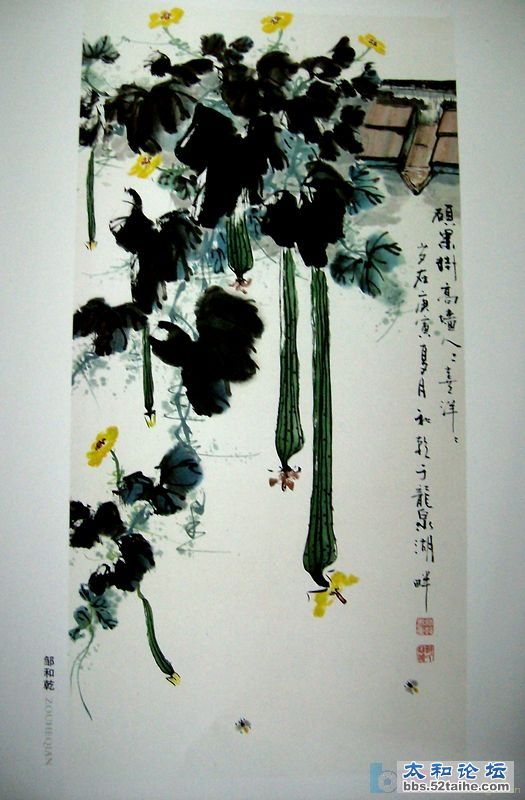 碩果掛高墙人〻喜洋〻
岁在庚寅夏月和乾于龍泉湖畔
邹和乾 ZOUHEQIAN
太和论坛
bbs.52taihe.com